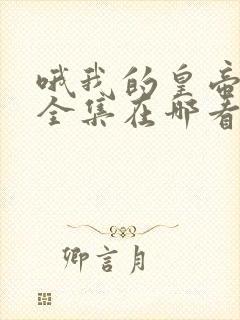 哦我的皇帝
全集在哪看
卿言月